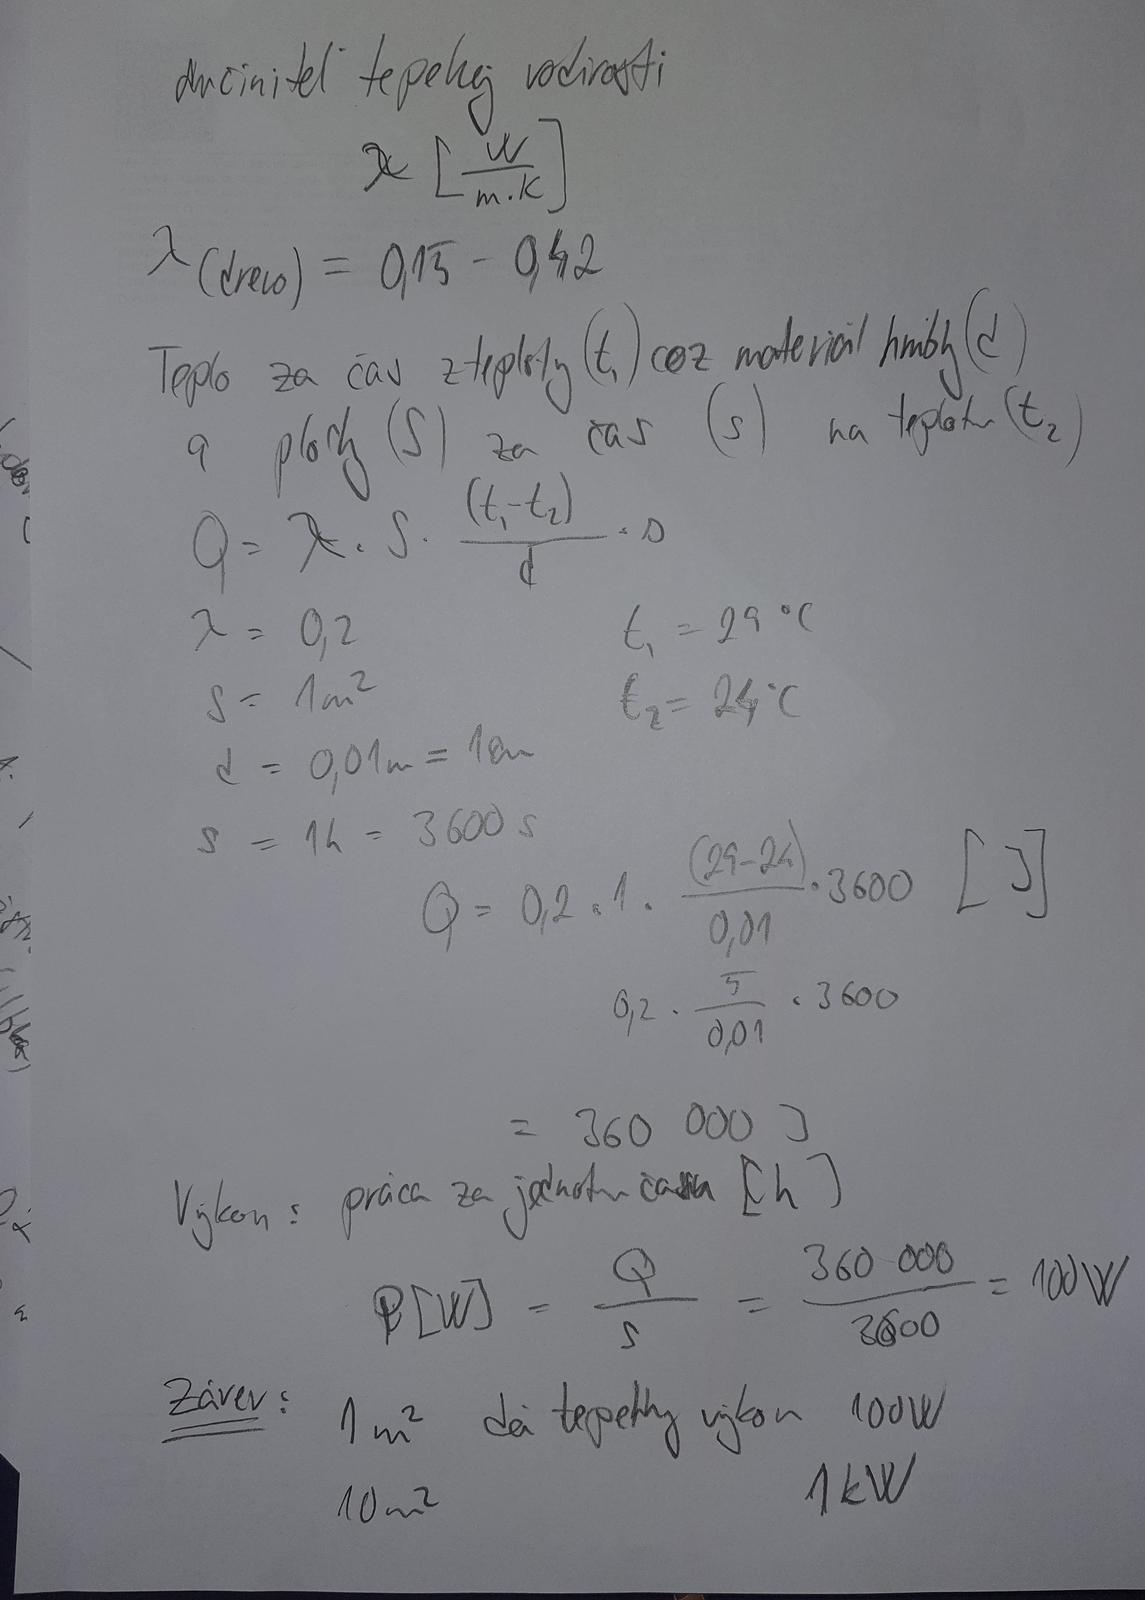 súčiniteľ tepelnej vodivosti
λ [W/m.K]
λ (drevo) = 0,15 - 0,42
Teplo za čas z teploty (t₁) cez materiál hrúbky (d)
a plochy (S) za čas (s) na teplotu (t₂)
Q = λ . S . (t₁-t₂)/d . s
λ = 0,2 t₁ = 29 °C
S = 1m² t₂ = 24 °C
d = 0,01m = 1cm
s = 1h = 3600 s
Q = 0,2 . 1 . (29-24)/0,01 . 3600 [J]
0,2 . 5/0,01 . 3600
= 360 000 J
Výkon : práca za jednotku času [h]
P[W] = Q/s = 360 000/3600 = 100W
Záver : 1m² dá tepelný výkon 100W
10m² 1kW